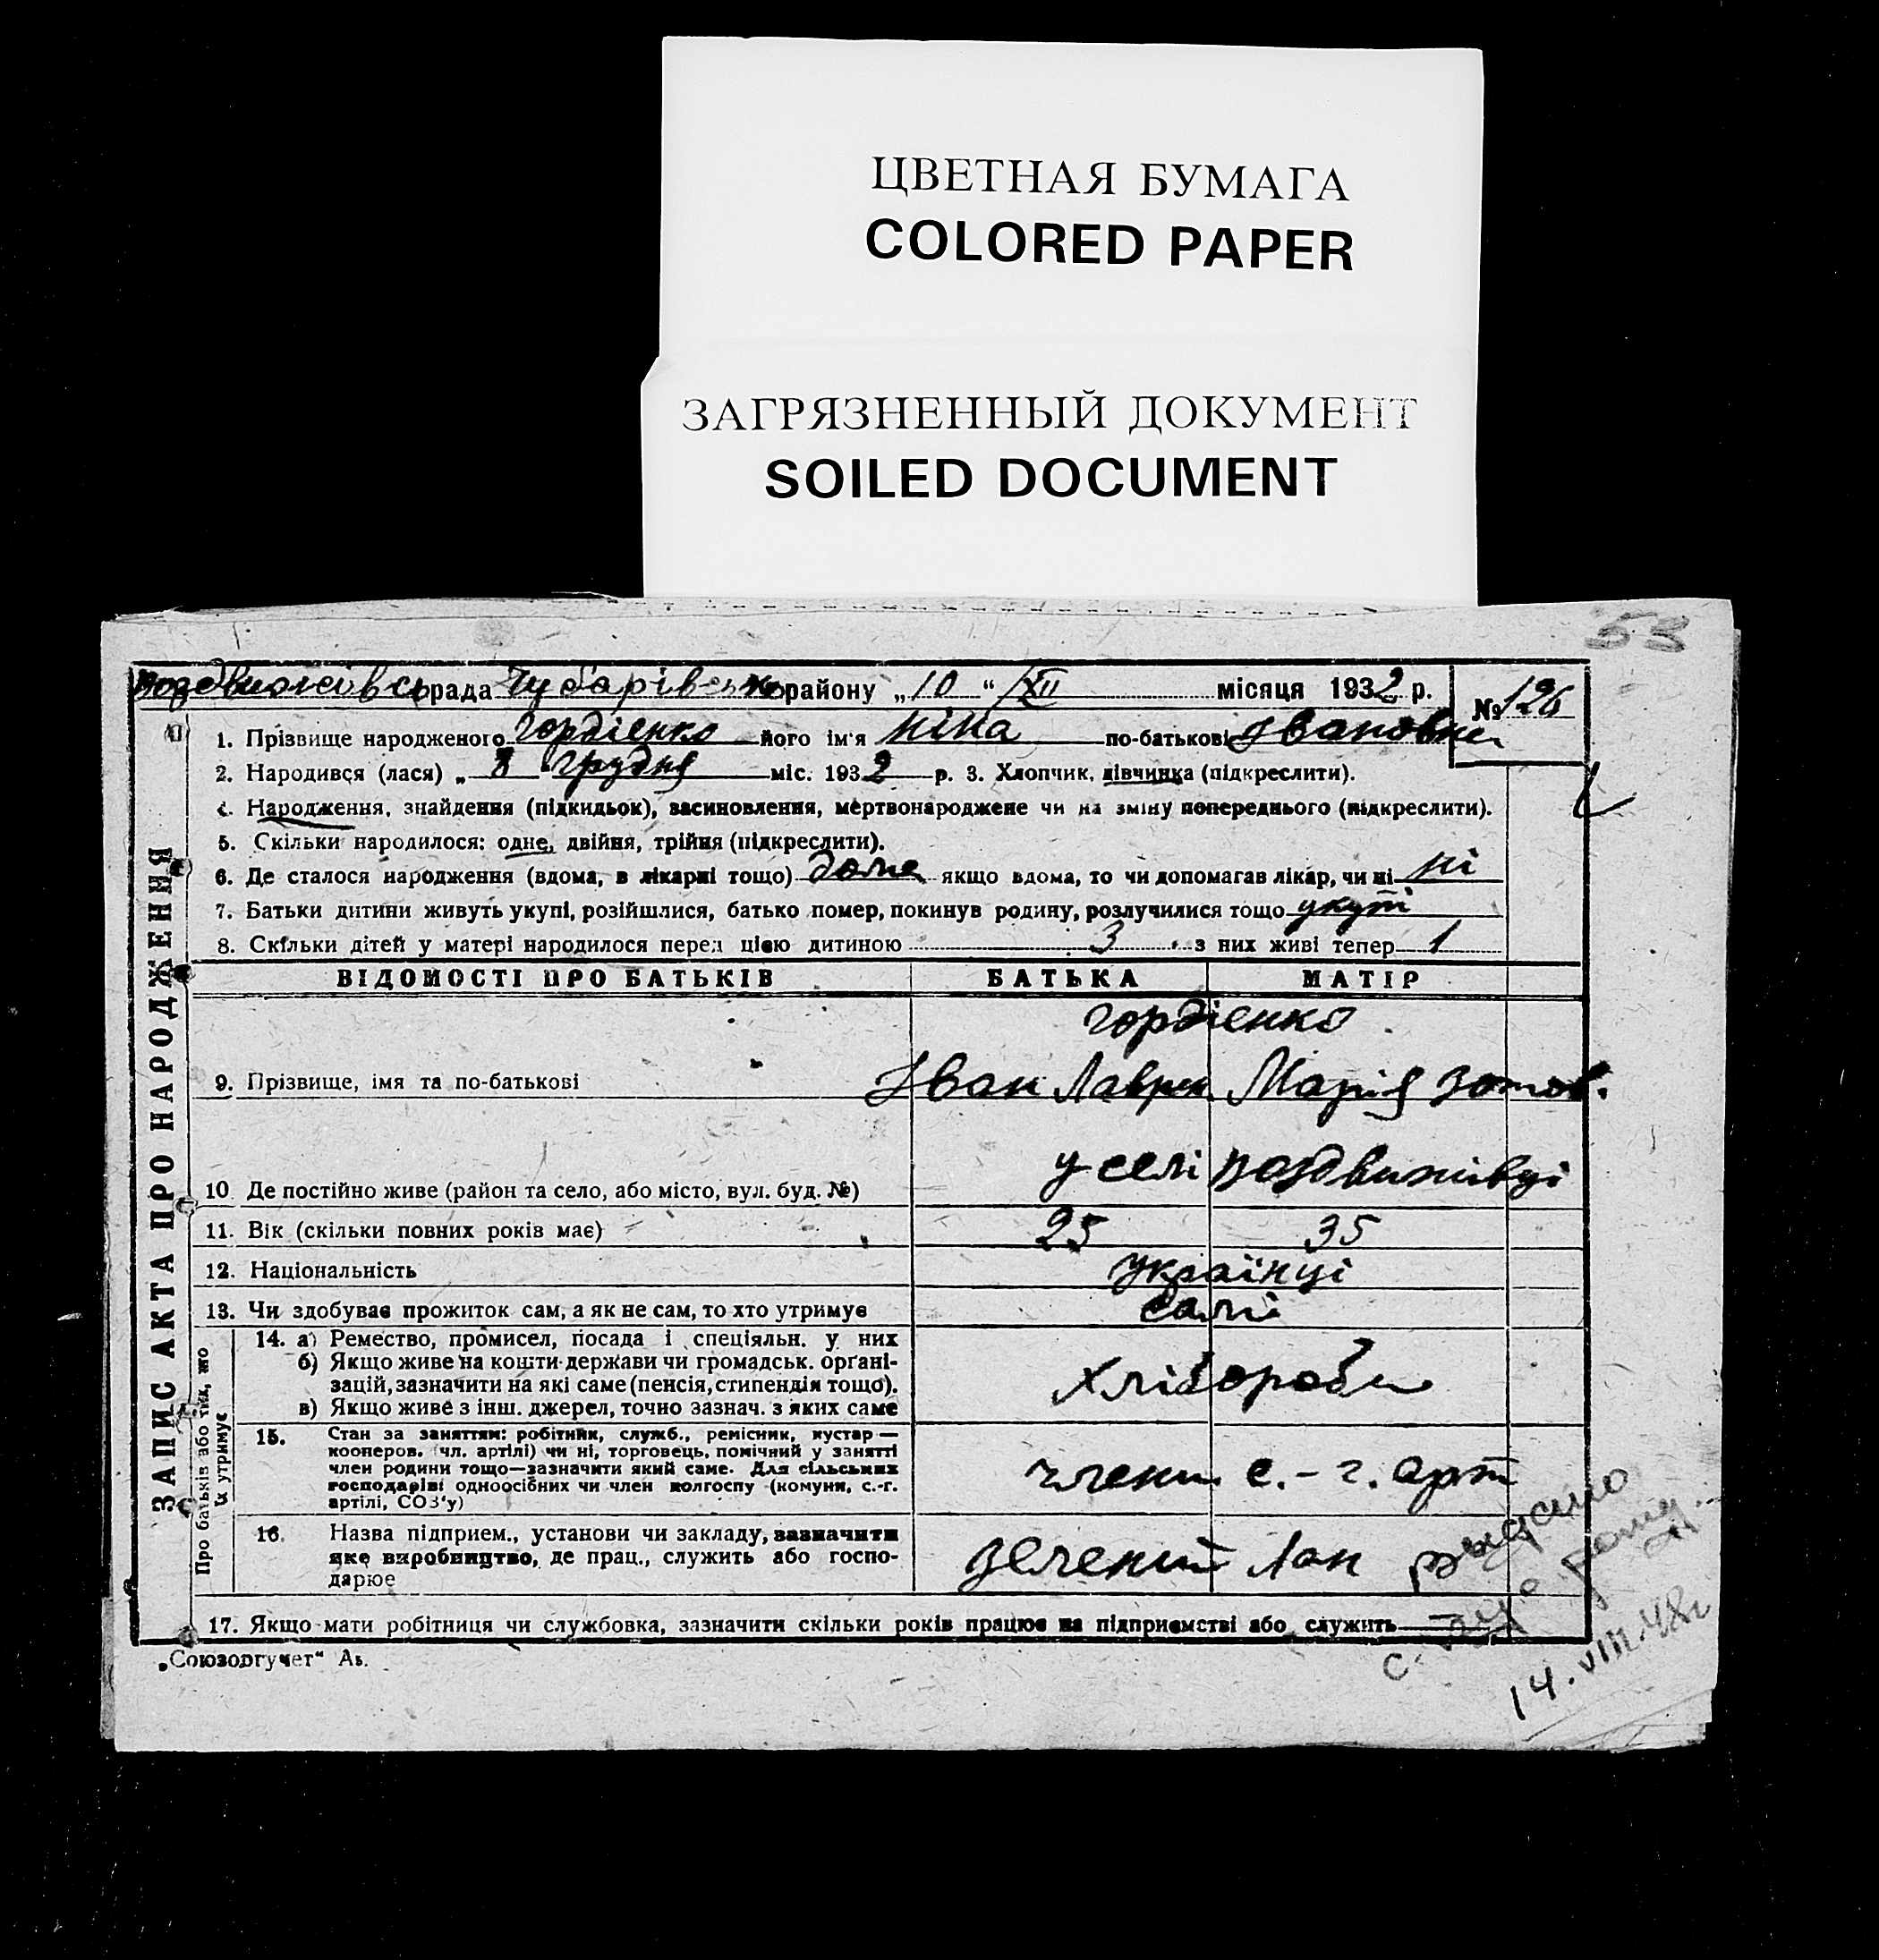 ЦВЕТНАЯ БУМАГА
COLORED PAPER
ЗАГРЯЗНЕННЫЙ ДОКУМЕНТ
SOILED DOCUMENT
53
рада Чубарівсько району „10“ XII місяця 1932 р.
№ 126
1. Прізвище народженого Гордієнко його ім'я Ніна по-батькові Івановна
2. Народився (лася) „8“ грудня міс. 1932 р. 3. Хлопчик, дівчинка (підкреслити).
4. Народження, знайдення (підкидьок), засиновлення, мертвонароджене чи на зміну попереднього (підкреслити).
5. Скільки народилося: одне, двійня, трійня (підкреслити).
6. Де сталося народження (вдома, в лікарні тощо) дома якщо вдома, то чи допомагав лікар, чи ні ні
7. Батьки дитини живуть укупі, розійшлися, батько помер, покинув родину, розлучилися тощо укупі
8. Скільки дітей у матері народилося перед цією дитиною 3 з них живі тепер 1
ВІДОМОСТІ ПРО БАТЬКІВ БАТЬКА МАТІР
Гордієнко
9. Прізвище, імя та по-батькові Іван Лаврен. Марія Зотов.
10. Де постійно живе (район та село, або місто, вул. буд. №) у селі Воздвижівці
11. Вік (скільки повних років має) 25 35
12. Національність українці
13. Чи здобуває прожиток сам, а як не сам, то хто утримує самі
14. а) Ремество, промисел, посада і спеціяльн. у них
б) Якщо живе на кошти держави чи громадськ. орґані-
зацій, зазначити на які саме (пенсія, стипендія тощо).
в) Якщо живе з інш. джерел, точно зазнач. з яких саме
хлібороби
15. Стан за заняттям: робітник, служб., ремісник, кустар—
кооперов. (чл. артілі) чи ні, торговець, помічний у занятті
член родини тощо—зазначити який саме. Для сільських
господарів: одноосібних чи член колгоспу (комуни, с.-г.
артілі, СОЗ'у)
члени с.-г. арт
16. Назва підприєм., установи чи закладу, зазначити
яке виробництво, де прац., служить або госпо-
дарює
Зелений Лан
17. Якщо мати робітниця чи службовка, зазначити скільки років працює на підприємстві або служить
ЗАПИС АКТА ПРО НАРОДЖЕННЯ
Про батьків або тих, що
їх утримує
14.VIII.48г
„Союзоргучет“